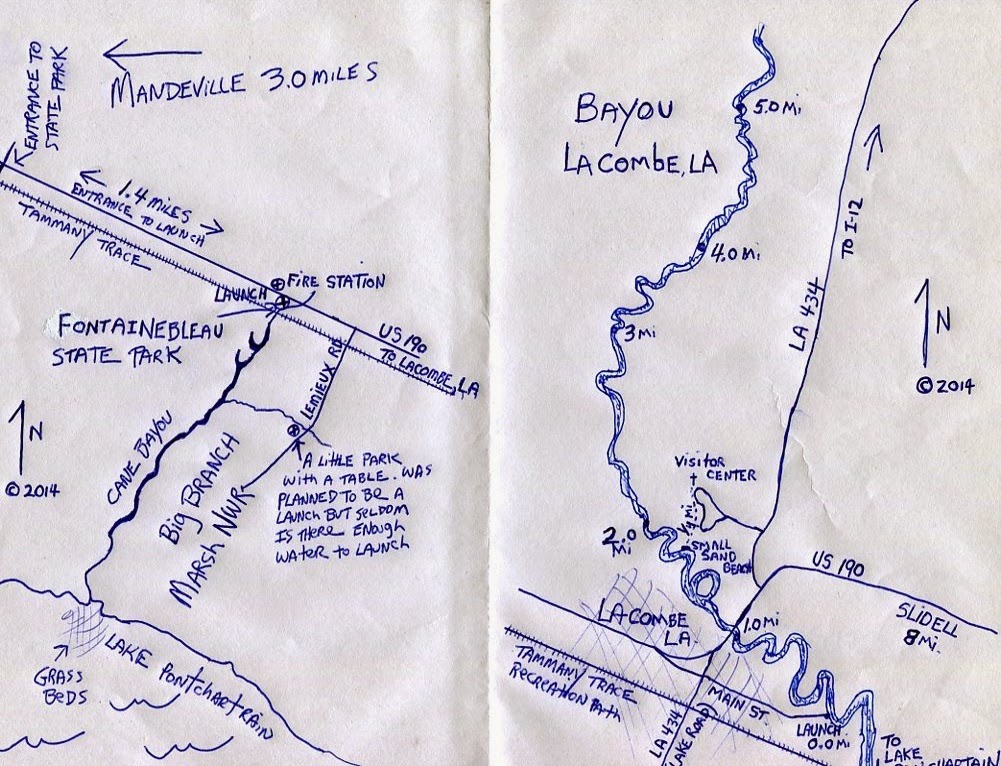 ENTRANCE TO
STATE PARK
MANDEVILLE 3.0 MILES
1.4 MILES
ENTRANCE TO LAUNCH
TAMMANY TRACE
FIRE STATION
LAUNCH
FONTAINEBLEAU
STATE PARK
US 190
TO LACOMBE, LA
LEMIEUX RD
N
©2014
CANE BAYOU
BIG BRANCH
MARSH NWR
A LITTLE PARK
WITH A TABLE. WAS
PLANNED TO BE A
LAUNCH BUT SELDOM
IS THERE ENOUGH
WATER TO LAUNCH
LAKE PONTCHARTRAIN
GRASS
BEDS
BAYOU
LACOMBE, LA
5.0 MI
4.0 MI
3 MI
TO I-12
LA 434
N
©2014
VISITOR
CENTER
1/4 MI
2.0
MI
SMALL
SAND
BEACH
US 190
SLIDELL
8 MI.
LACOMBE
LA.
1.0 MI
TAMMANY TRACE
RECREATION PATH
MAIN ST.
LA 434
LAKE ROAD)
LAUNCH
0.0 MI
TO
LAKE